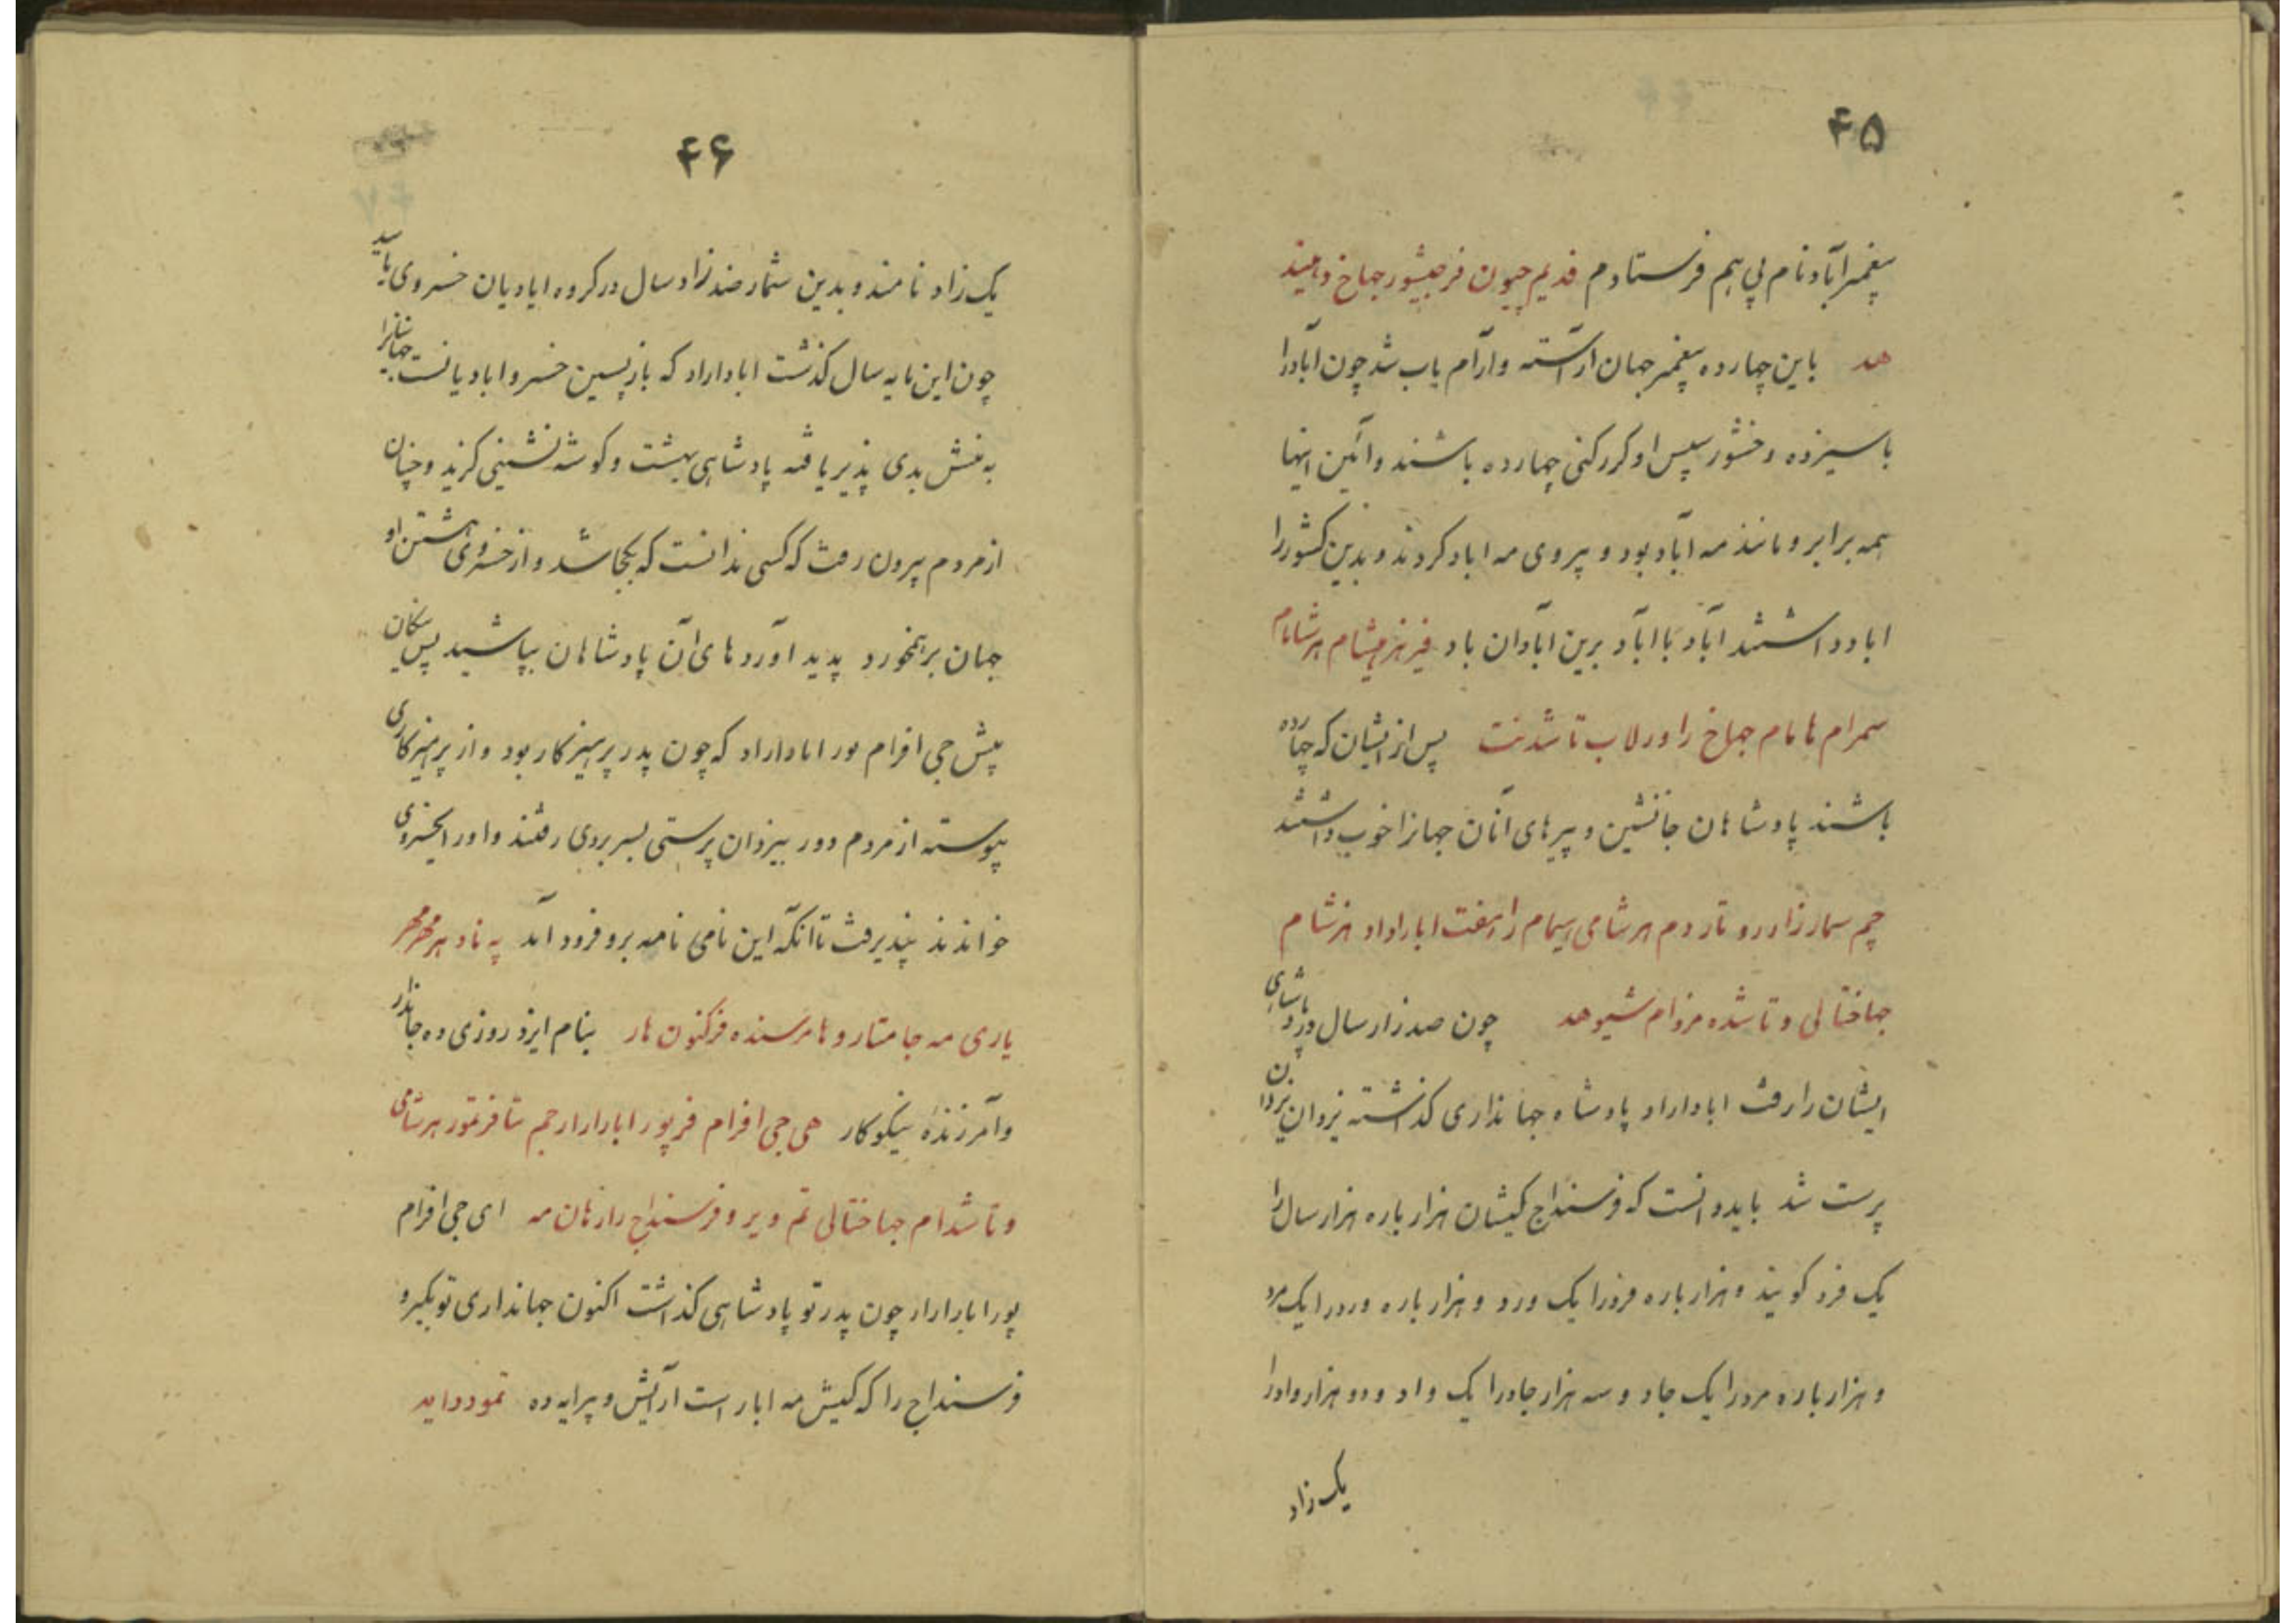 ۴۵
پیغمبر آباد نام پی هم فرستادم فدیم چیون فرجیشور جهاخ و مهیند
هد باین چهارده پیغمبر جهان آراسته و آرام یاب شد چون آباد را
با سیزده وخشور سپس او کرد کنی چهارده باشند و آئین اینها
همه برابر و مانند مه آباد بود و پیروی مه اباد کردند و بدین کشور را
اباد داشتند آباد باآباد برین آبادان باد فیرهنر میشام هرشامام
سمرام هامام جهاخ را ورلاب تاشدنت پس از ایشان که چهارده
باشند پادشاهان جانشین و پیرهای آنان جهانرا خوب داشتند
چم سمار زاد رو تاردم هرشامی سیمام را هفت اباراداد هرشام
جهاختالی و تاشده مزدام شیوهد چون صد زاد سال در پادشاهی
ایشان را رفت اباداراد پادشاه جهانداری گذاشته یزدان
پرست شد باید دانست که فرسنداج کیشان هزار باره هزار سال را
یک فرد گویند و هزار باره فرد را یک ورد و هزار باره ورد را یک مرد
و هزار باره مرد را یک جاد و سه هزار جاد را یک واد و دو هزار واد را
یک زاد
۴۶
یک زاد نامند و بدین شمار صد زاد سال در گروه ابادیان خسروی پایید
چون این مایه سال گذشت اباداراد که بازپسین خسرو ابادیانست جهانیانرا
به منش بدی پذیر یافته پادشاهی بهشت و گوشه نشینی گزید و چنان
از مردم بیرون رفت که کسی ندانست که بکجا شد و از خسروی هشتن او
جهان برهمخورد پدید آوردهای آن پادشاهان بپاشید پس نیکان
پیش جی افرام پور اباداراد که چون پدر پرهیزکار بود و از پرهیزکاری
پیوسته از مردم دور بیزدان پرستی بسر بردی رفتند و او را بخسروی
خواندند نپذیرفت تا آنکه این نامی نامه برو فرود آمد په ناد هرمهر
یاری مه جامتار و هامرسنده فرکنون هار بنام ایزد روزی ده جاندار
و آمرزنده نیکوکار هی جی افرام فرپور ابارارار چم تافرتمور هرشامی
و تاشدام جهاختالی تم ویر و فرسنداج را زهان مه ای جی افرام
پور ابارارار چون پدر تو پادشاهی گذاشت اکنون جهانداری تو بگیر و
فرسنداج را که کیش مه اباد است آرایش و پیرایه ده تمود داید